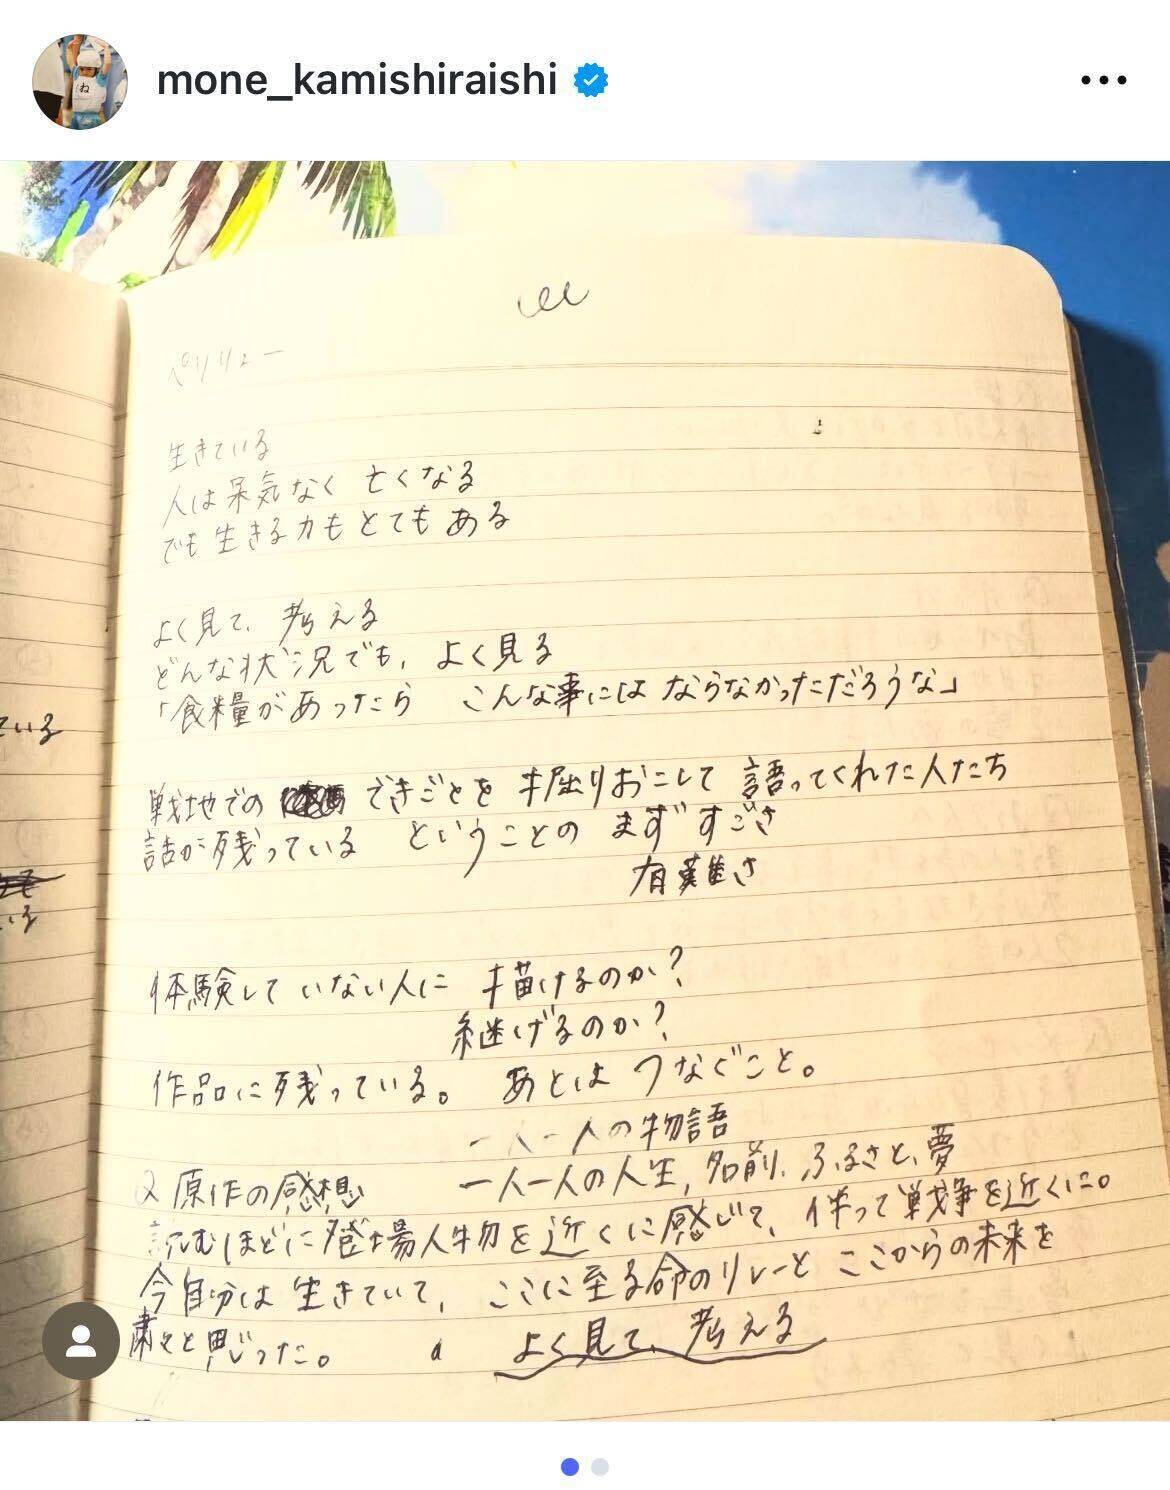 mone_kamishiraishi
ペリリュー
生きている
人は呆気なく 亡くなる
でも生きる力もとてもある
よく見て、考える
どんな状況でも、よく見る
「食糧があったら こんな事にはならなかっただろうな」
戦地での できごとを 掘りおこして 語ってくれた人たち
話が残っている ということの まず すごさ
有難さ
体験していない人に 描けるのか?
継げるのか?
作品に残っている。 あとは つなぐこと。
一人一人の物語
Q 原作の感想 一人一人の人生, 名前、ふるさと、夢
読むほどに登場人物を近くに感じて、伴って戦争を近くに。
今自分は 生きていて、 ここに至る命のリレーと ここからの未来を
粛々と思った。 よく見て、考える
ている
いる